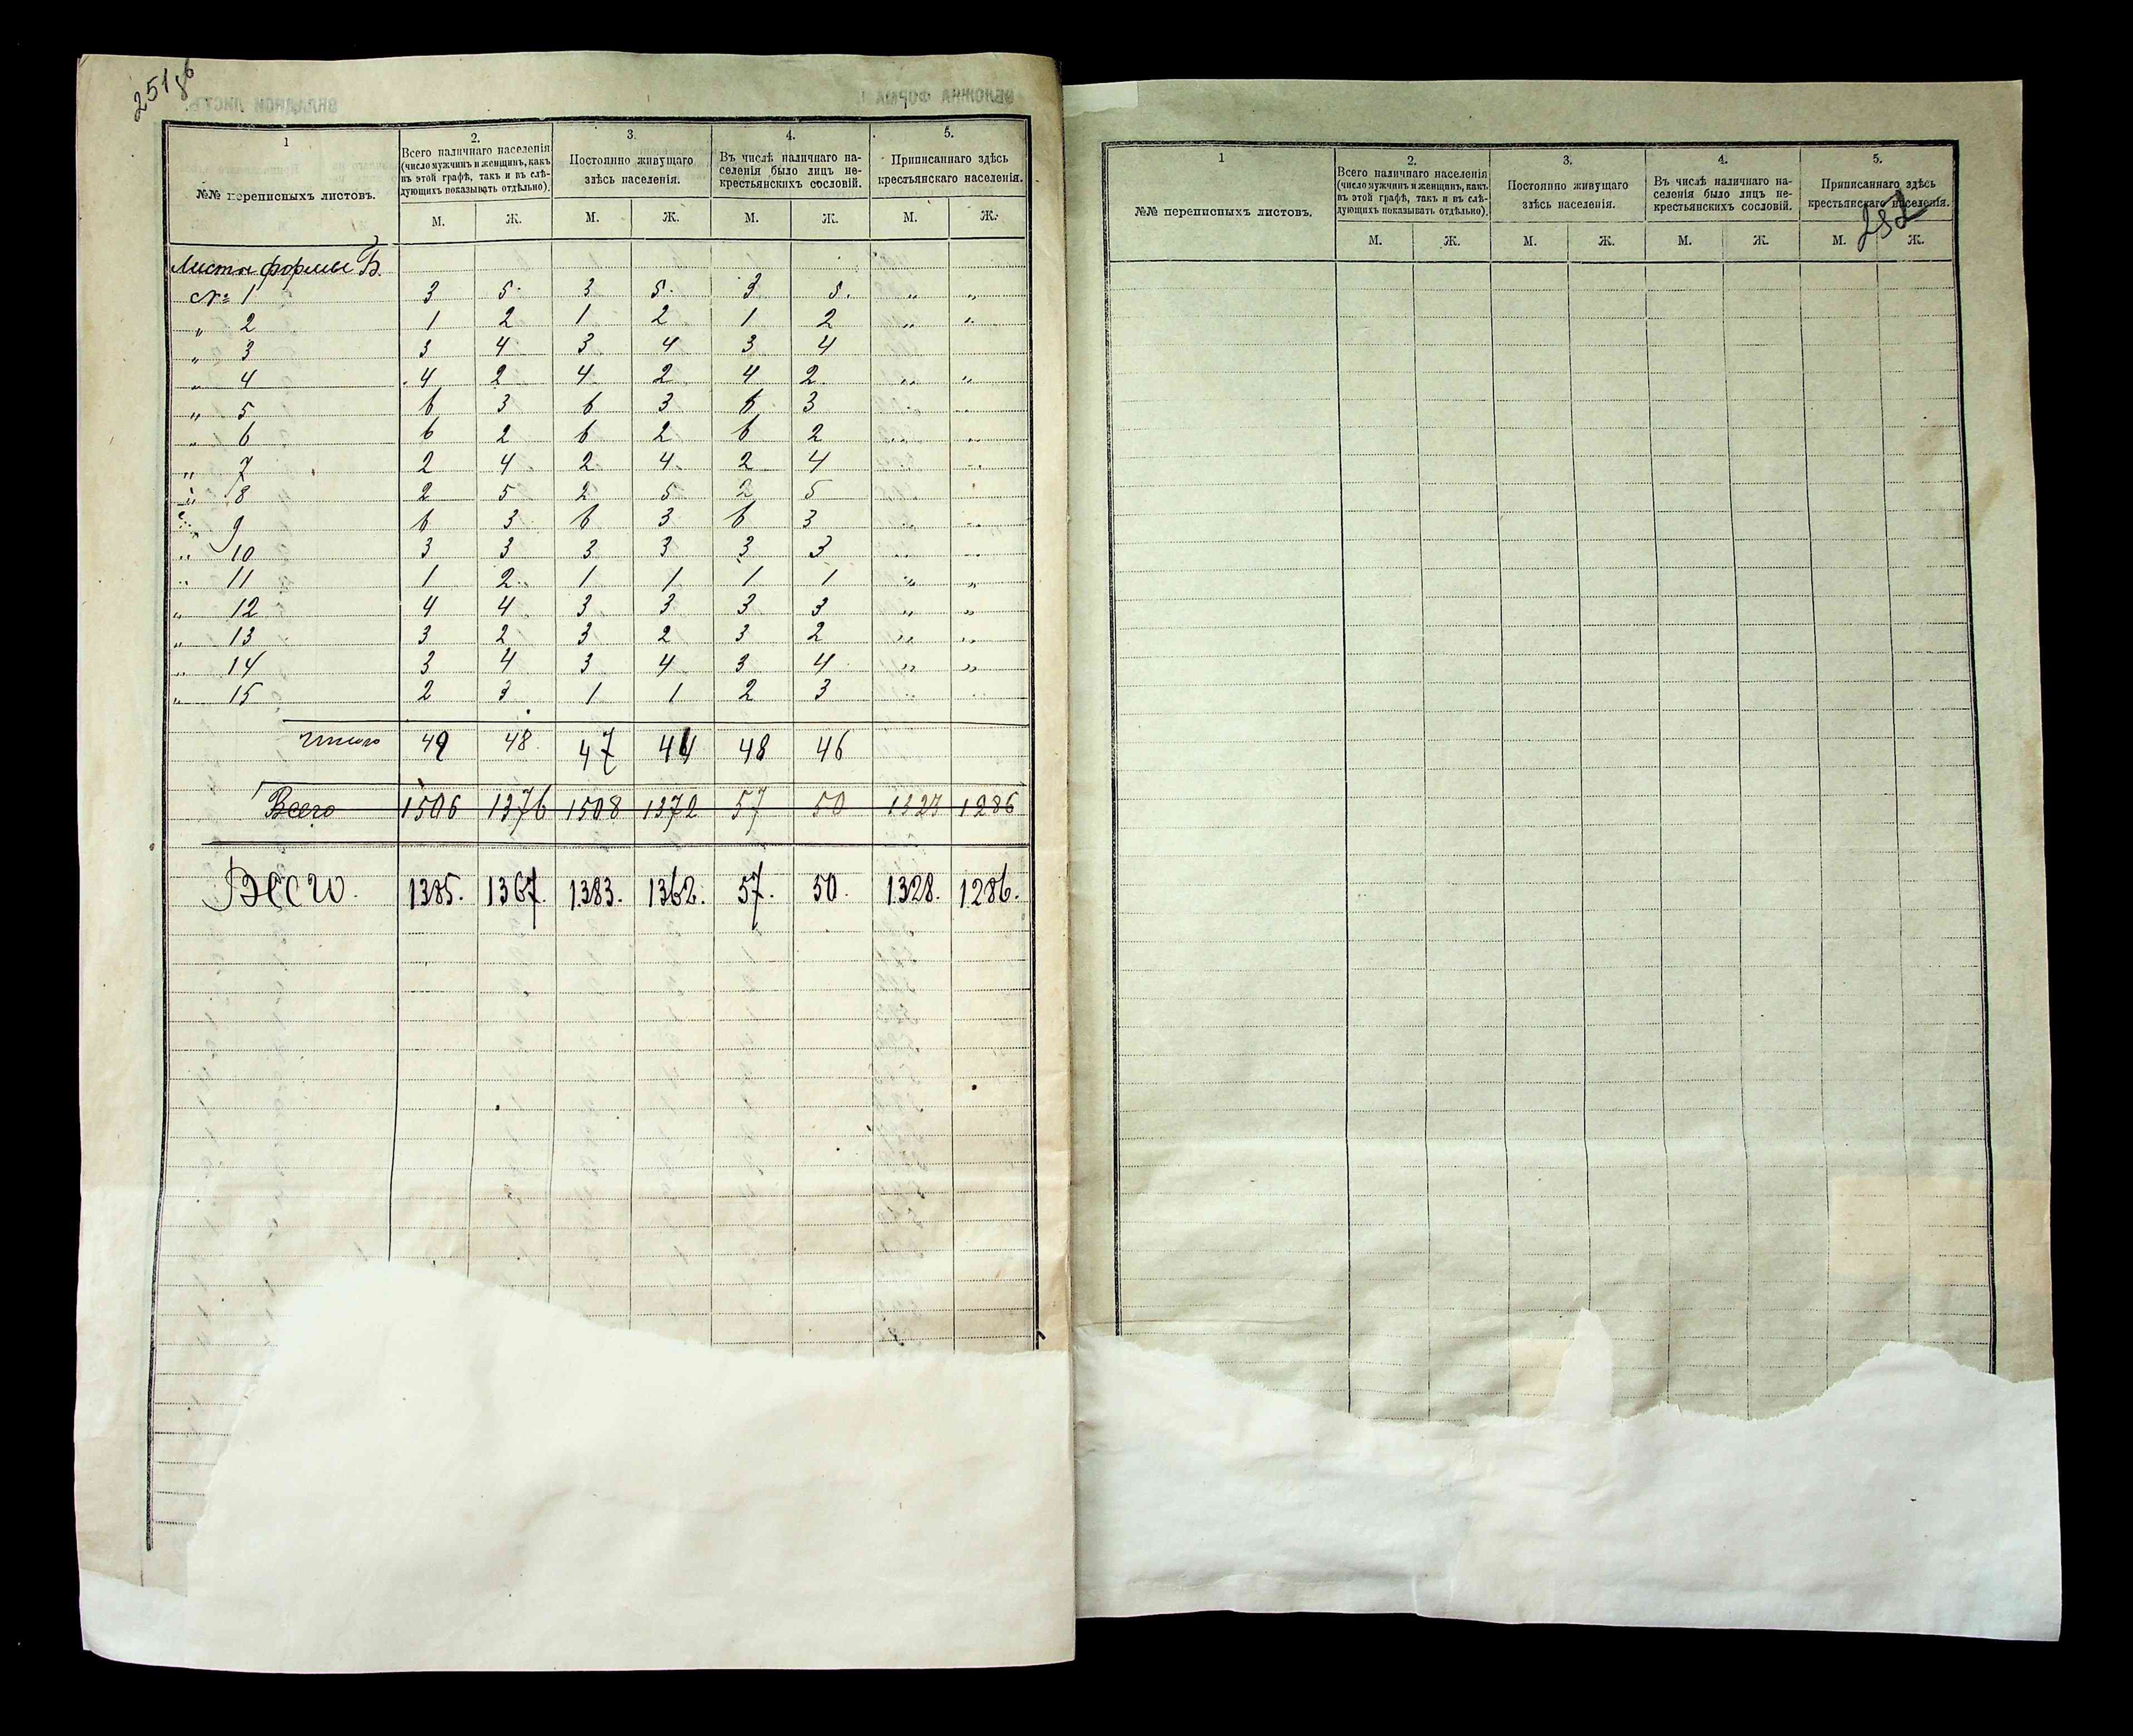 251 об
1 2. 3. 4. 5.
№№ переписныхъ листовъ.
Всего наличнаго населенія
(число мужчинъ и женщинъ, какъ
въ этой графѣ, такъ и въ слѣ-
дующихъ показывать отдѣльно).
Постоянно живущаго
здѣсь населенія.
Въ числѣ наличнаго на-
селенія было лицъ не-
крестьянскихъ сословій.
Приписаннаго здѣсь
крестьянскаго населенія.
М. Ж. М. Ж. М. Ж. М. Ж.
Листы формы Б.
№ 1 3 5 3 5 3 5 „ „
„ 2 1 2 1 2 1 2 „ „
„ 3 3 4 3 4 3 4
„ 4 4 2 4 2 4 2 „ „
„ 5 6 3 6 3 6 3 „ „
„ 6 6 2 6 2 6 2 „ „
„ 7 2 4 2 4 2 4 „ „
„ 8 2 5 2 5 2 5
„ 9 6 3 6 3 6 3 „ „
„ 10 3 3 3 3 3 3 „ „
„ 11 1 2 1 1 1 1 „ „
„ 12 4 4 3 3 3 3 „ „
„ 13 3 2 3 2 3 2 „ „
„ 14 3 4 3 4 3 4 „ „
„ 15 2 3 1 1 2 3 „ „
Итого 49 48 47 44 48 46
Всего 1506 1376 1508 1372 57 50 1327 1286
Всего. 1385. 1367. 1383. 1362. 57. 50. 1328. 1286.
1 2. 3. 4. 5.
№№ переписныхъ листовъ.
Всего наличнаго населенія
(число мужчинъ и женщинъ, какъ
въ этой графѣ, такъ и въ слѣ-
дующихъ показывать отдѣльно).
Постоянно живущаго
здѣсь населенія.
Въ числѣ наличнаго на-
селенія было лицъ не-
крестьянскихъ сословій.
Приписаннаго здѣсь
крестьянскаго населенія.
252
М. Ж. М. Ж. М. Ж. М. Ж.